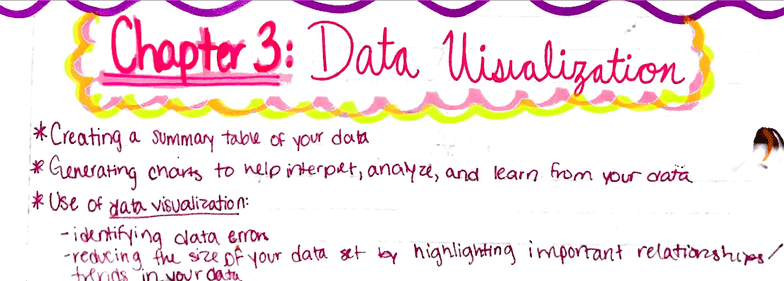 Chapter 3: Data Visualization
*Creating a summary table of your data
*Generating charts to help interpret, analyze, and learn from your data
*Use of data visualization:
-identifying data errors
-reducing the size of your data set by highlighting important relationships/
trends in your data